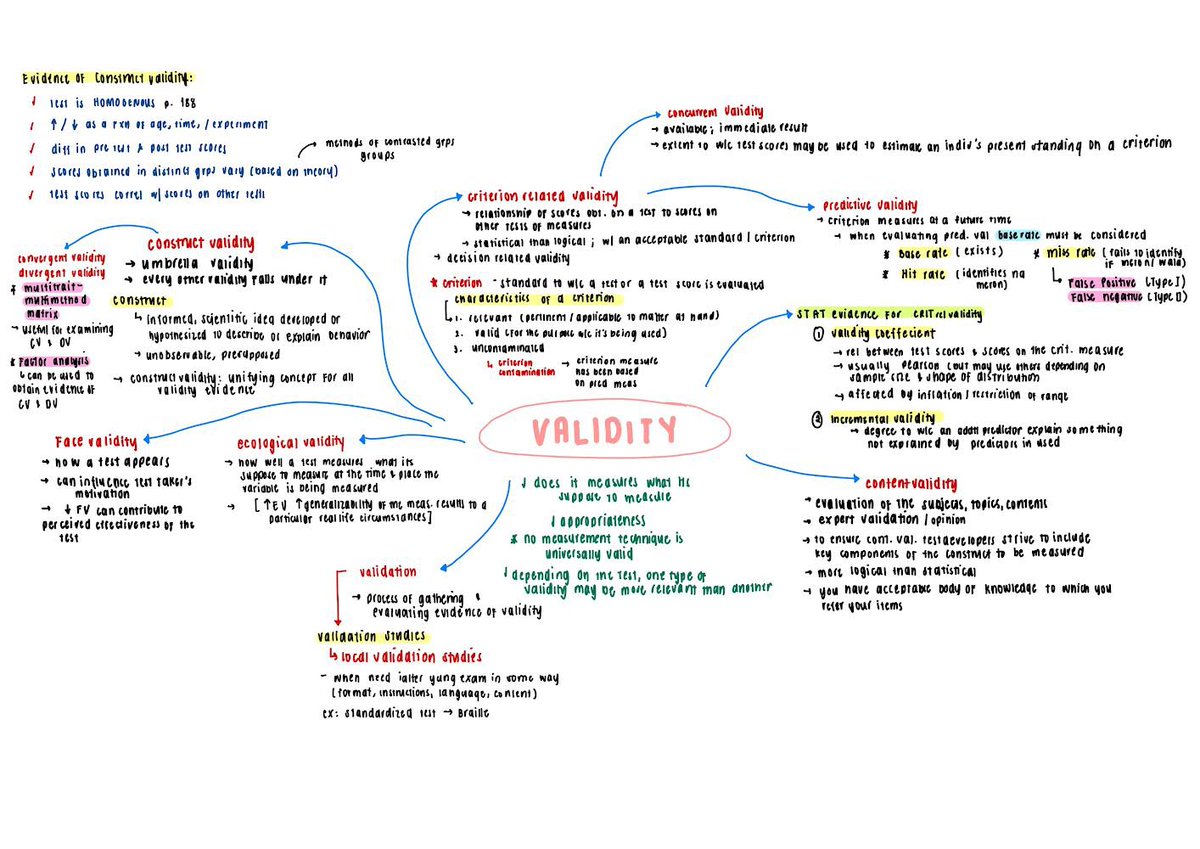 Evidence of Construct validity:
✓ Test is HOMOGENOUS p. 188
✓ ↑ / ↓ as a fxn of age, time, / experiment
✓ diff in pre test & post test scores
✓ scores obtained in distinct grps vary (based on theory)
→ methods of contrasted grps
groups
✓ test scores correl w/ scores on other tests
construct validity
→ umbrella validity
→ every other validity falls under it
construct
↳ informed, scientific idea developed or
hypothesized to describe or explain behavior
→ unobservable, presupposed
→ construct validity: unifying concept for all
validity evidence
convergent validity
divergent validity
* multitrait-
multimethod
matrix
→ useful for examining
CV & DV
* Factor analysis
↳ can be used to
obtain evidence of
CV & DV
concurrent validity
→ available; immediate result
→ extent to w/c test scores may be used to estimate an indiv's present standing on a criterion
criterion related validity
→ relationship of scores obt. on a test to scores on
other tests of measures
→ statistical than logical ; w/ an acceptable standard / criterion
→ decision related validity
* criterion - standard to w/c a test or a test score is evaluated
characteristics of a criterion
↳ 1. relevant (pertinent / applicable to matter at hand)
2. valid (for the purpose w/c it's being used)
3. uncontaminated
↳ criterion
contamination
→ criterion measure
has been based
on pred meas
predictive validity
→ criterion measures at a future time
→ when evaluating pred. val base rate must be considered
* Base rate (exists)
* Hit rate (identifies na
meron)
* miss rate (fails to identify
if meron/wala)
↳ False positive (Type I)
False negative (Type II)
STAT evidence for crit rel validity
① validity coefficient
→ rel between test scores & scores on the crit. measure
→ usually pearson (but may use others depending on
sample size & shape of distribution
→ affected by inflation / restriction of range
② incremental validity
→ degree to w/c an addtl predictor explain something
not explained by predictors in used
VALIDITY
↓ does it measures what its
suppose to measure
↓ appropriateness
* no measurement technique is
universally valid
↓ depending on the test, one type of
validity may be more relevant than another
Face validity
→ how a test appears
→ can influence test taker's
motivation
→ ↓ FV can contribute to
perceived effectiveness of the
test
ecological validity
→ how well a test measures what its
suppose to measure at the time & place the
variable is being measured
→ [ ↑EV ↑ generalizability of the meas. results to a
particular real life circumstances]
content validity
→ evaluation of the subjects, topics, contents
→ expert validation / opinion
→ to ensure cont. val. test developers strive to include
key components of the construct to be measured
→ more logical than statistical
→ you have acceptable body of knowledge to which you
refer your items
validation
→ process of gathering &
evaluating evidence of validity
validation studies
↳ local validation studies
- when need ialter yung exam in some way
(format, instructions, language, content)
ex: standardized test → Braille